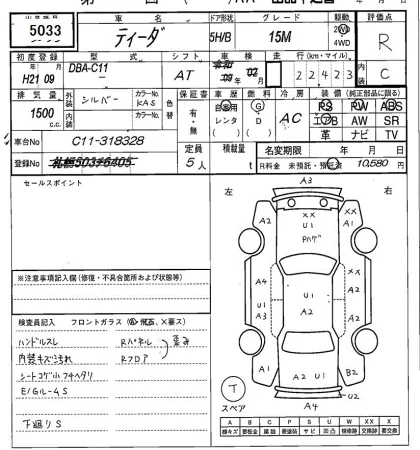 5033
車名
ティーダ
ドア形状
5H/B
グレード
15M
駆動
2WD
4WD
評価点
R
初度登録
年 月
H21 09
型式
DBA-C11
シフト
AT
車検
年 月
09 02
走行(km・マイル)
22423
内装
C
排気量
1500
c.c.
外装
シルバー
内装
カラーNo.
KAS
カラーNo.
色替
保証書
有・無
車歴
自家用
レンタ
( )
燃料
G
D
( )
冷房
AC
装備(純正部品に限る)
PS PW ABS
エアB AW SR
革 ナビ TV
車台No
C11-318328
登録No
札幌503 6405
定員
5人
積載量
t
名変期限 年 月 日
R料金 未預託・預託済 10,580円
セールスポイント
※注意事項記入欄(修復・不具合箇所および状態等)
検査員記入 フロントガラス(A・飛石、×要ス)
ハンドルスレ
内装キズ汚れ
シートコゲ小フキヘタリ
E/Gルーム S
下廻り S
Rパネル
Rフロア
歪み
左 右
A3
A2
XX
U1
XX
A1
A4
U1
A3
U1
A2
A2
A2
A1
A2 U1
B2
U2
A4
T
スペア
A B C P S U W X XX
線キズ